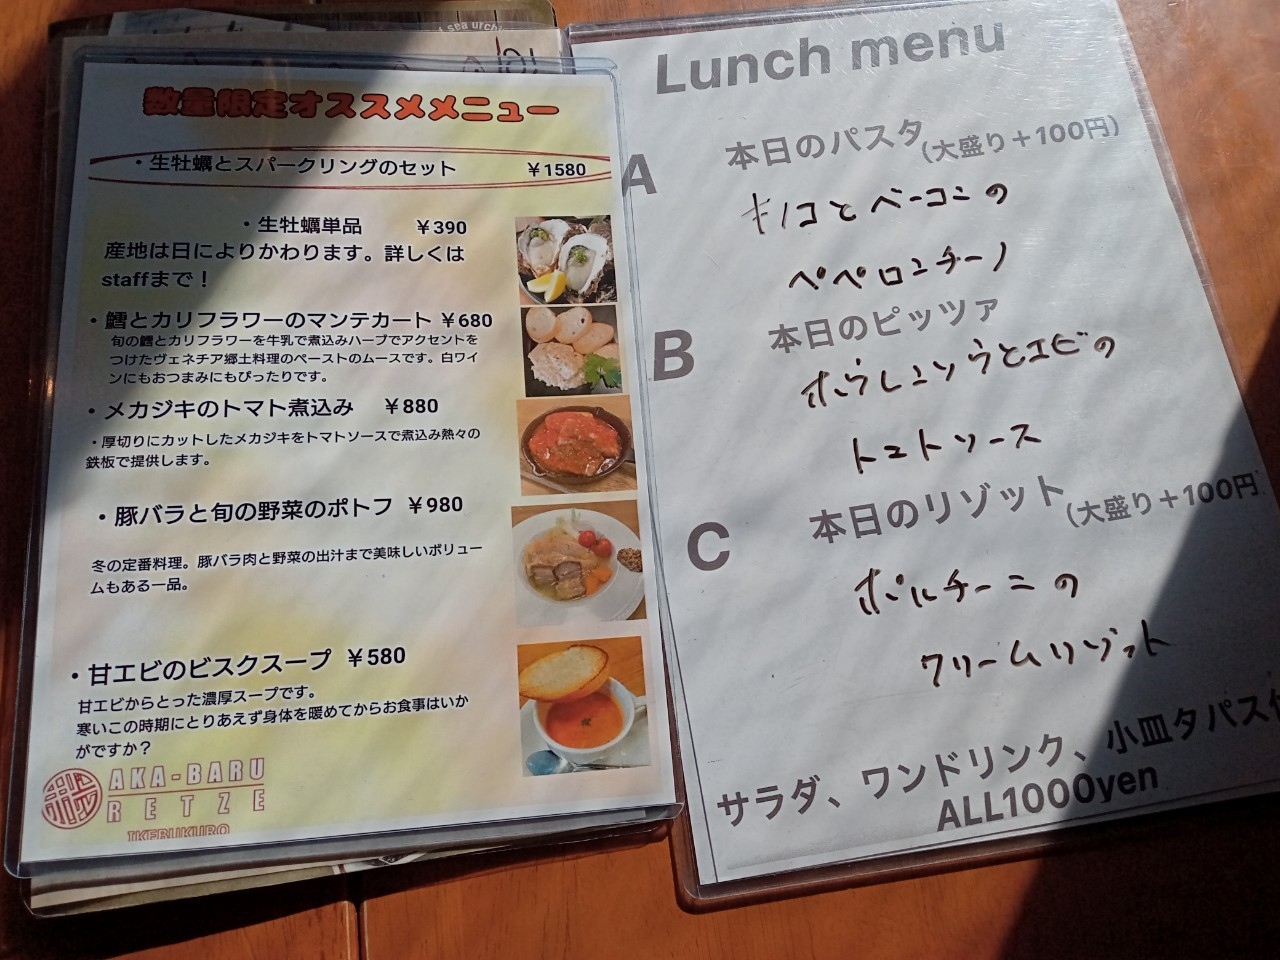 sea urchi
数量限定オススメメニュー
・生牡蠣とスパークリングのセット ￥1580
・生牡蠣単品 ￥390
産地は日によりかわります。詳しくは
staffまで！
・鱈とカリフラワーのマンテカート ￥680
旬の鱈とカリフラワーを牛乳で煮込みハーブでアクセントを
つけたヴェネチア郷土料理のペーストのムースです。白ワイ
ンにもおつまみにもぴったりです。
・メカジキのトマト煮込み ￥880
・厚切りにカットしたメカジキをトマトソースで煮込み熱々の
鉄板で提供します。
・豚バラと旬の野菜のポトフ ￥980
冬の定番料理。豚バラ肉と野菜の出汁まで美味しいボリュー
ムもある一品。
・甘エビのビスクスープ ￥580
甘エビからとった濃厚スープです。
寒いこの時期にとりあえず身体を暖めてからお食事はいか
がですか？
AKA-BARU
RETZE
IKEBUKURO
Lunch menu
A 本日のパスタ(大盛り＋100円)
キノコとベーコンの
ペペロンチーノ
B 本日のピッツァ
ホウレンソウとエビの
トマトソース
C 本日のリゾット(大盛り＋100円
ポルチーニの
クリームリゾット
サラダ、ワンドリンク、小皿タパス
ALL1000yen